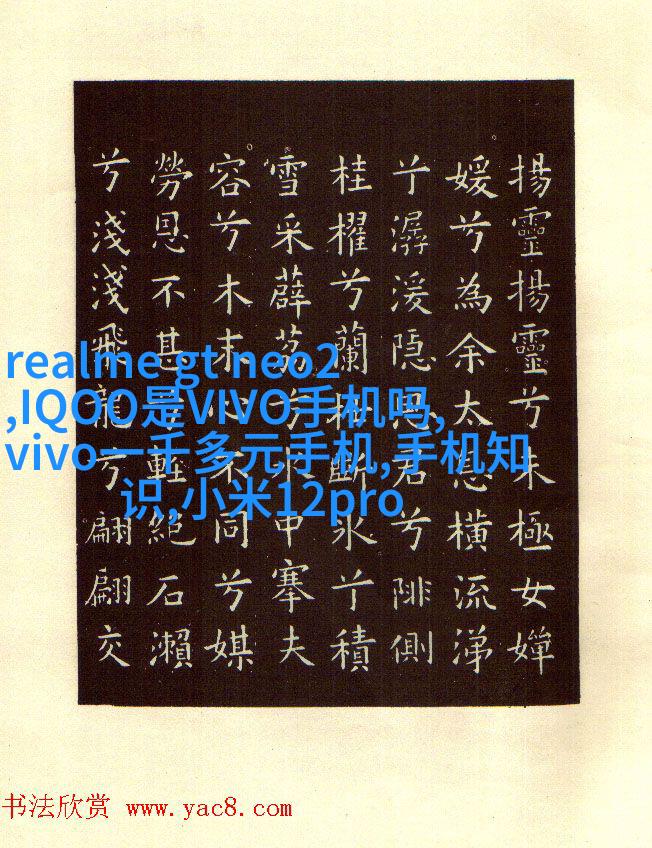 揚靈揚靈兮未極女嬋
媛兮為余太息橫流涕
兮潺湲隱思君兮陫側
桂櫂兮蘭枻斲冰兮積
雪采薜荔兮水中搴夫
容兮木末心不同兮媒
勞恩不甚兮輕絕石瀨
兮淺淺飛龍兮翩翩交
realme gt neo2
,IQOO是VIVO手机吗,
vivo一千多元手机,手机知
识,小米12pro
书法欣赏 www.yac8.com